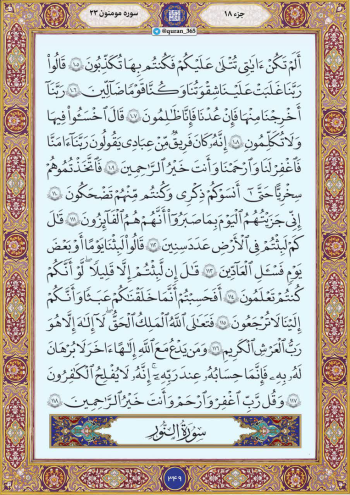 جزء ۱۸
@quran_365
سوره مومنون ۲۳
أَلَمْ تَكُنْ ءَايَٰتِي تُتْلَىٰ عَلَيْكُمْ فَكُنتُم بِهَا تُكَذِّبُونَ ۝١٠٥ قَالُوا۟
رَبَّنَا غَلَبَتْ عَلَيْنَا شِقْوَتُنَا وَكُنَّا قَوْمًا ضَآلِّينَ ۝١٠٦ رَبَّنَآ
أَخْرِجْنَا مِنْهَا فَإِنْ عُدْنَا فَإِنَّا ظَٰلِمُونَ ۝١٠٧ قَالَ ٱخْسَـُٔوا۟ فِيهَا
وَلَا تُكَلِّمُونِ ۝١٠٨ إِنَّهُۥ كَانَ فَرِيقٌ مِّنْ عِبَادِي يَقُولُونَ رَبَّنَآ ءَامَنَّا
فَٱغْفِرْ لَنَا وَٱرْحَمْنَا وَأَنتَ خَيْرُ ٱلرَّٰحِمِينَ ۝١٠٩ فَٱتَّخَذْتُمُوهُمْ
سِخْرِيًّا حَتَّىٰٓ أَنسَوْكُمْ ذِكْرِي وَكُنتُم مِّنْهُمْ تَضْحَكُونَ ۝١١٠
إِنِّي جَزَيْتُهُمُ ٱلْيَوْمَ بِمَا صَبَرُوٓا۟ أَنَّهُمْ هُمُ ٱلْفَآئِزُونَ ۝١١١ قَٰلَ
كَمْ لَبِثْتُمْ فِي ٱلْأَرْضِ عَدَدَ سِنِينَ ۝١١٢ قَالُوا۟ لَبِثْنَا يَوْمًا أَوْ بَعْضَ
يَوْمٍ فَسْـَٔلِ ٱلْعَآدِّينَ ۝١١٣ قَٰلَ إِن لَّبِثْتُمْ إِلَّا قَلِيلًا ۖ لَّوْ أَنَّكُمْ
كُنتُمْ تَعْلَمُونَ ۝١١٤ أَفَحَسِبْتُمْ أَنَّمَا خَلَقْنَٰكُمْ عَبَثًا وَأَنَّكُمْ
إِلَيْنَا لَا تُرْجَعُونَ ۝١١٥ فَتَعَٰلَى ٱللَّهُ ٱلْمَلِكُ ٱلْحَقُّ ۖ لَآ إِلَٰهَ إِلَّا هُوَ
رَبُّ ٱلْعَرْشِ ٱلْكَرِيمِ ۝١١٦ وَمَن يَدْعُ مَعَ ٱللَّهِ إِلَٰهًا ءَاخَرَ لَا بُرْهَٰنَ
لَهُۥ بِهِۦ فَإِنَّمَا حِسَابُهُۥ عِندَ رَبِّهِۦٓ ۚ إِنَّهُۥ لَا يُفْلِحُ ٱلْكَٰفِرُونَ
۝١١٧ وَقُل رَّبِّ ٱغْفِرْ وَٱرْحَمْ وَأَنتَ خَيْرُ ٱلرَّٰحِمِينَ ۝١١٨
سُورَةُ ٱلنُّورِ
۳۴۹